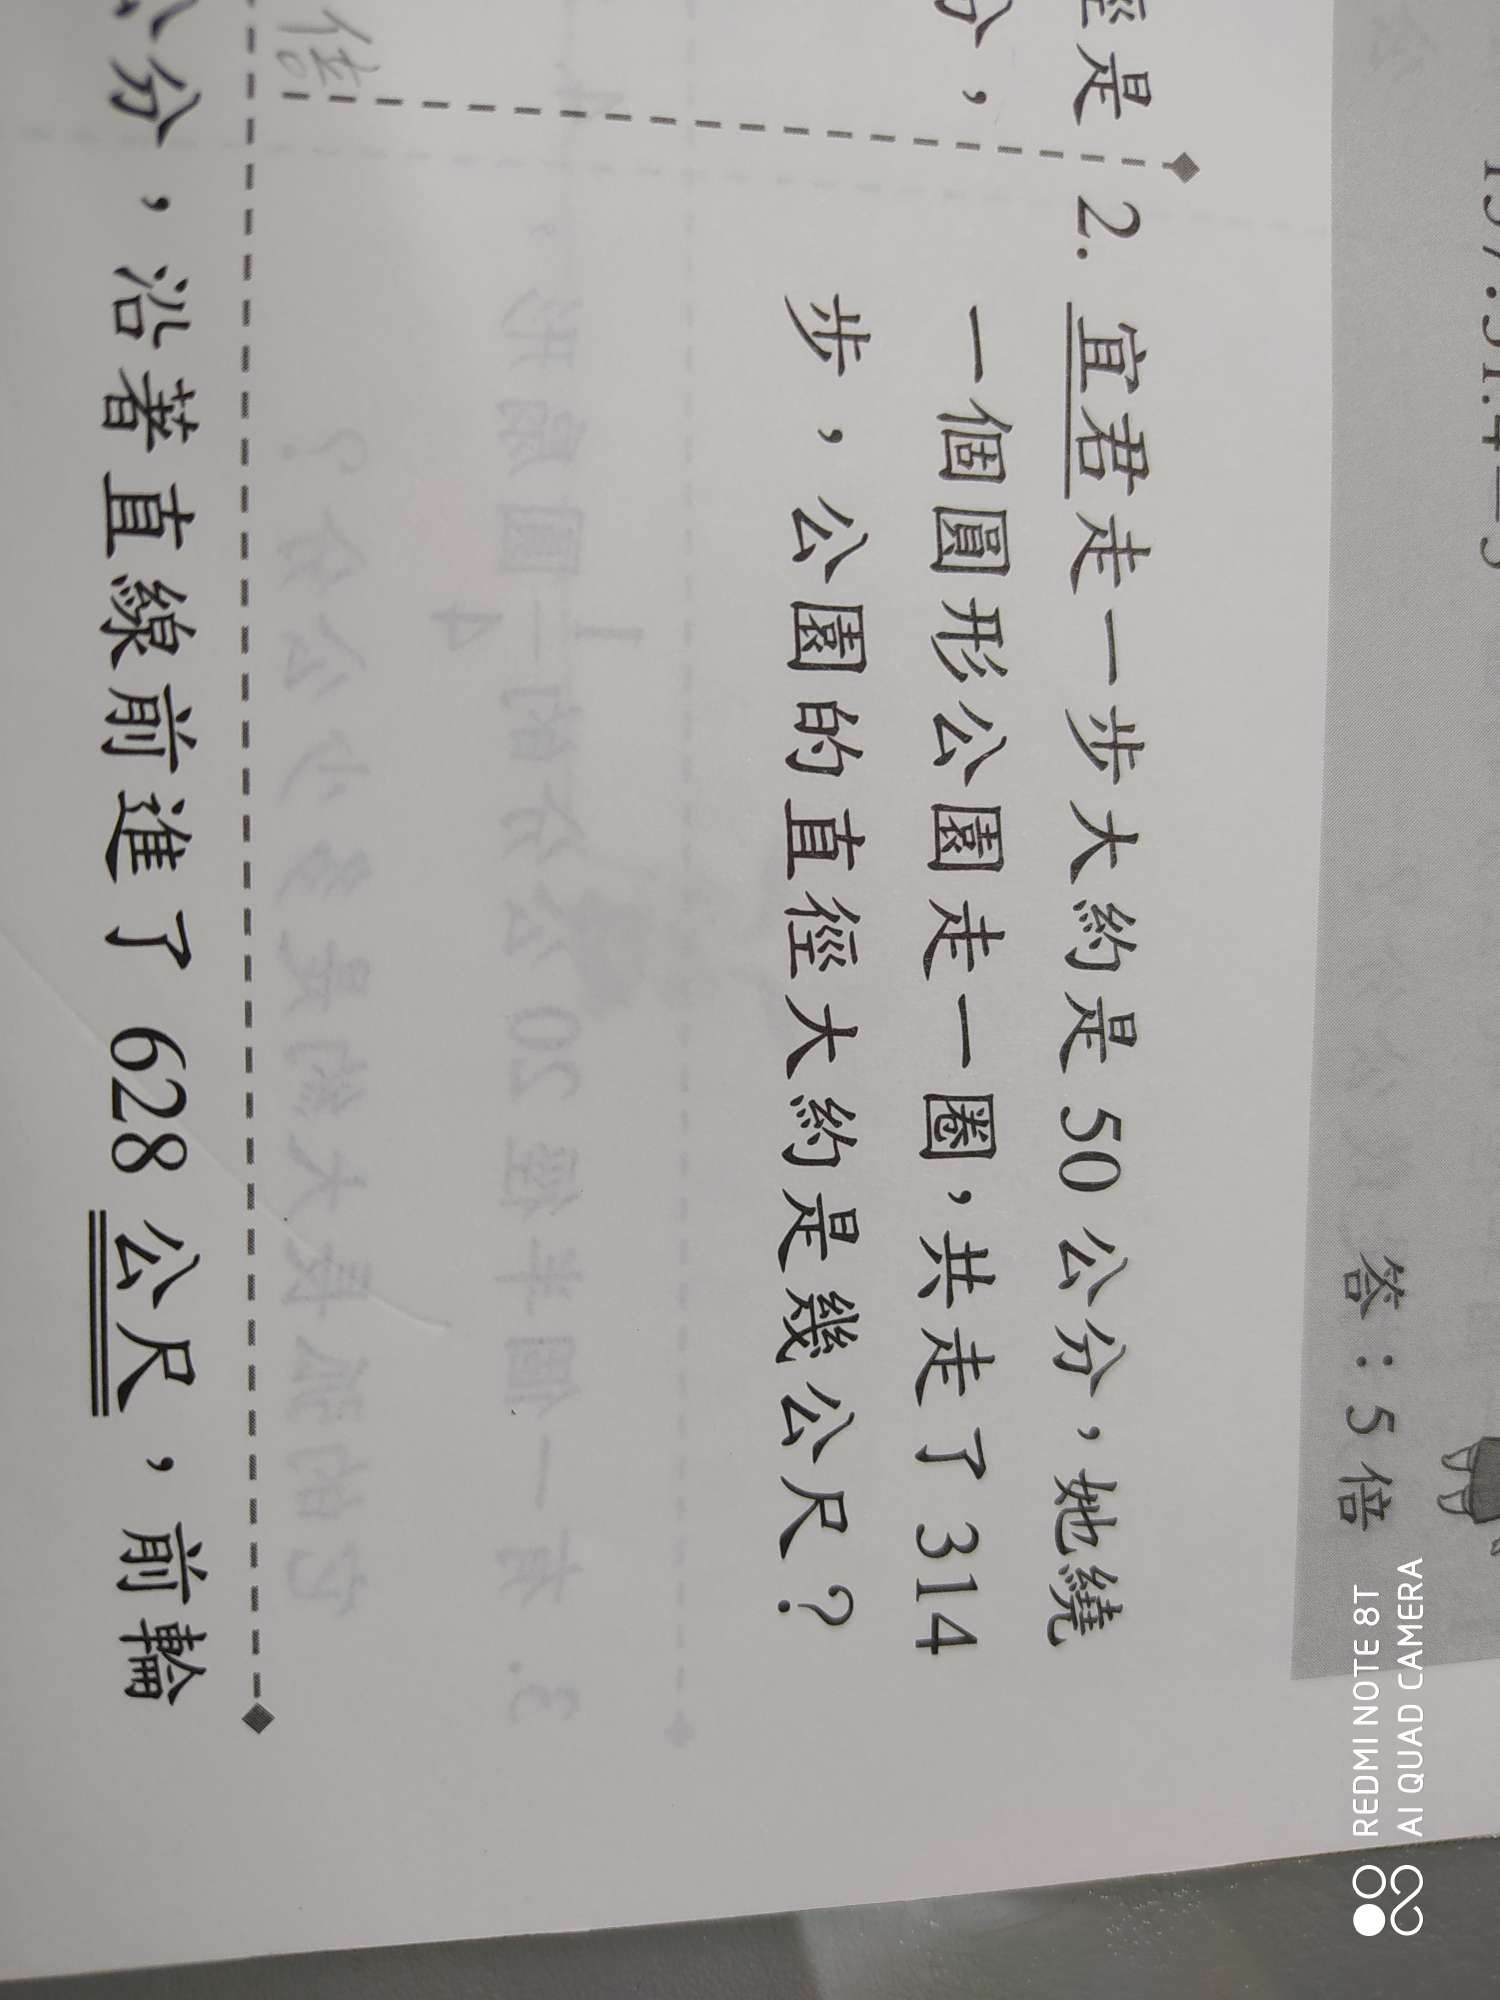 答：5倍
徑是
分，
2. 宜君走一步大約是 50 公分，她繞
一個圓形公園走一圈，共走了 314
步，公園的直徑大約是幾公尺？
公分，沿著直線前進了 628 公尺，前輪
REDMI NOTE 8T
AI QUAD CAMERA